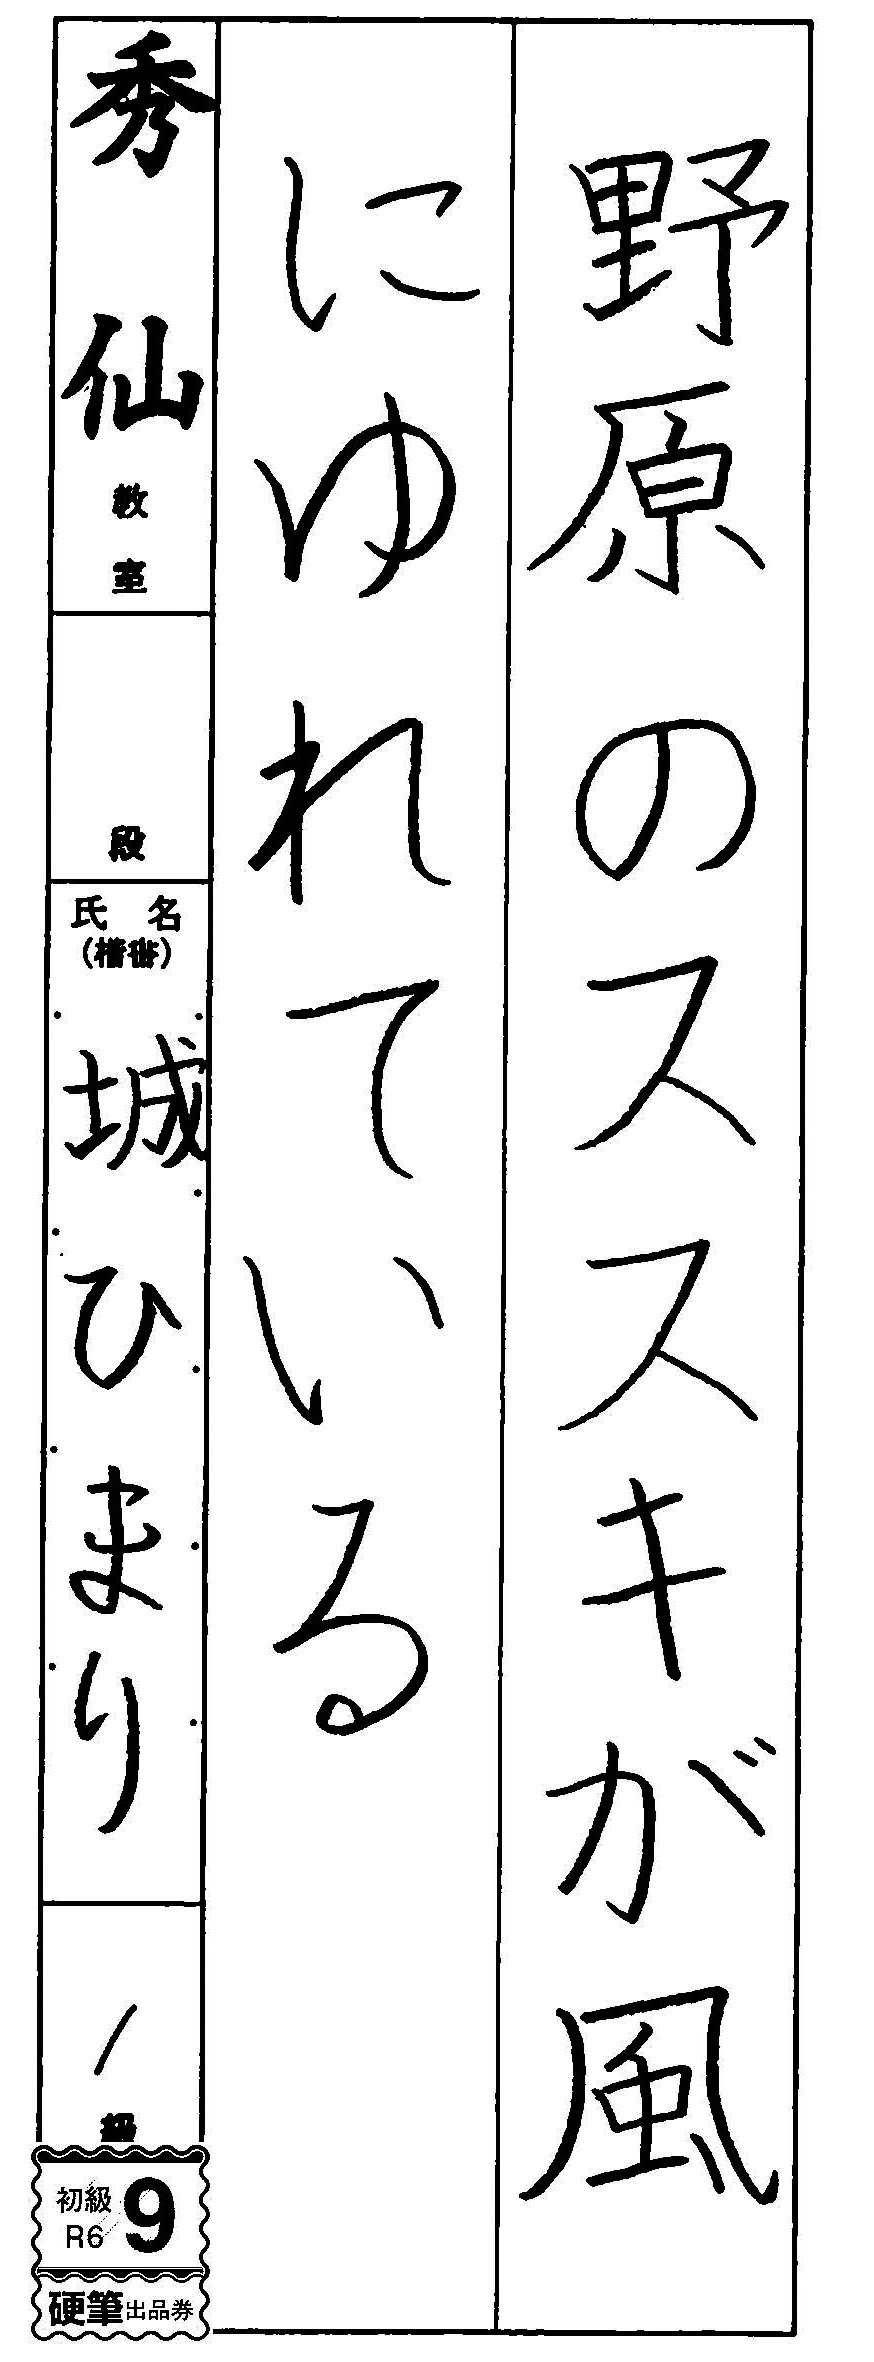 野原のススキが風
にゆれている
秀仙教室
段
氏名
(楷書)
城ひまり
1級
初級
R6 9
硬筆出品券